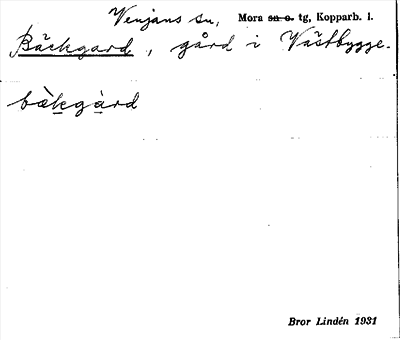 Venjans sn, Mora sn o. tg, Kopparb. l.
Bäckgard, gård i Västbygge.
bàkgàrd
Bror Lindén 1931